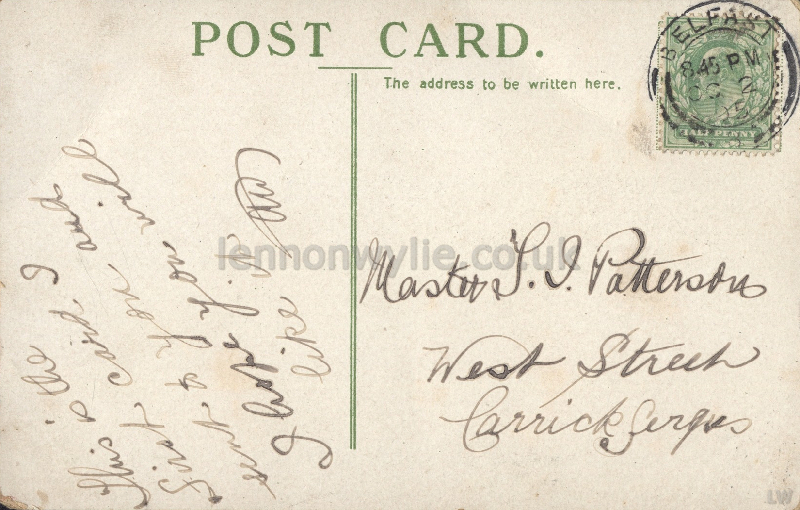 POST CARD.
The address to be written here.
BELFAST
8.45 PM
OC 2
05
HALF PENNY
This is the
First card I
sent to you and
I hope you will
like it.
Master S. J. Patterson
West Street
Carrickfergus
lennonwylie.co.uk
LW